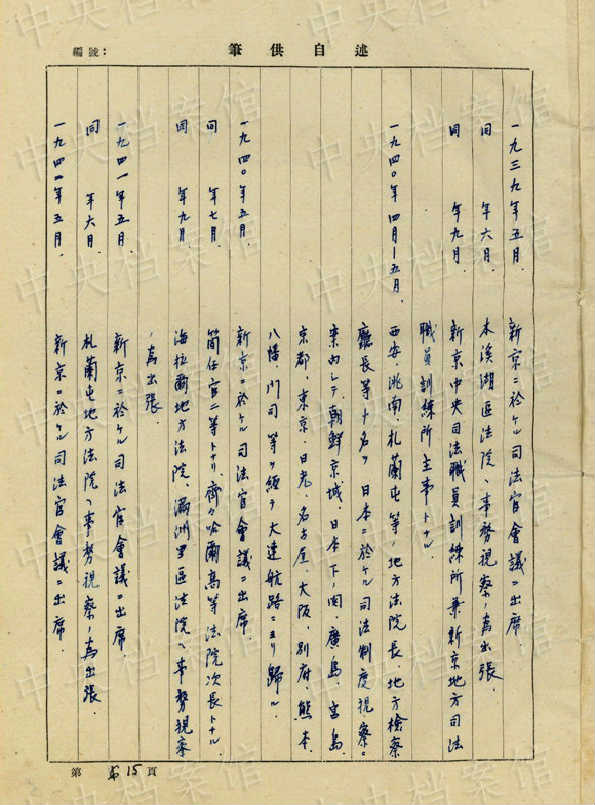 編號：
筆供自述
一九三九年五月．新京ニ於ケル司法官會議ニ出席．
同　年六月．本溪湖區法院ヘ事務視察ノ為出張．
同　年九月．新京中央司法職員訓練所兼新京地方司法
職員訓練所主事トナル．
一九四〇年四月－五月．西安．洮南．札蘭屯等ノ地方法院長．地方檢察
廳長等十名ヲ日本ニ於ケル司法制度視察。
案内シテ朝鮮京城．日本下ノ関．廣島．宮島．
京都．東京．日光．名古屋．大阪．別府．熊本．
八幡．門司等ヲ經テ大連航路ニヨリ歸ル．
一九四〇年五月．新京ニ於ケル司法官會議ニ出席．
同　年七月．簡任官二等トナリ齊々哈爾高等法院次長トナル．
同　年九月．海拉爾地方法院．滿洲里區法院ヘ事務視察
ノ為出張．
一九四一年五月．新京ニ於ケル司法官會議ニ出席．
同　年六月．札蘭屯地方法院ヘ事務視察ノ為出張．
一九四二年五月．新京ニ於ケル司法官會議ニ出席．
第　15頁
中央档案馆